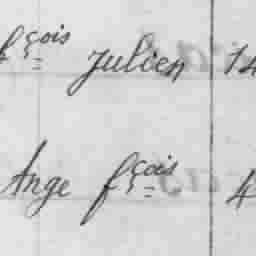 fçois Julien 14
Ange fçois 4